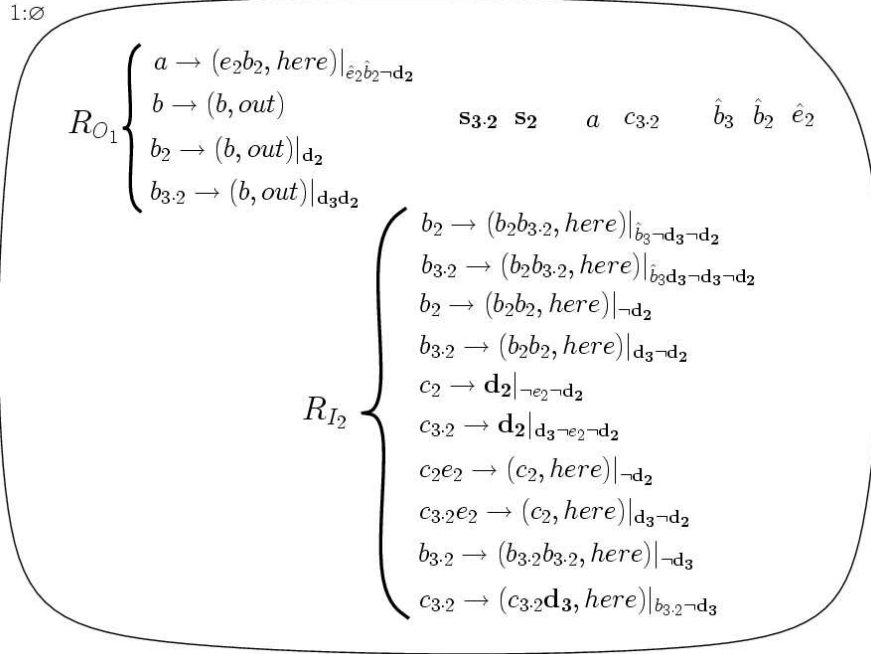 1:∅
a → (e₂b₂, here)|ê₂b̂₂¬d₂
R_{O₁}
b → (b, out)
s₃.₂ s₂ a c₃.₂ b̂₃ b̂₂ ê₂
b₂ → (b, out)|d₂
b₃.₂ → (b, out)|d₃d₂
b₂ → (b₂b₃.₂, here)|b̂₃¬d₃¬d₂
b₃.₂ → (b₂b₃.₂, here)|b̂₃d₃¬d₃¬d₂
b₂ → (b₂b₂, here)|¬d₂
b₃.₂ → (b₂b₂, here)|d₃¬d₂
c₂ → d₂|¬e₂¬d₂
R_{I₂}
c₃.₂ → d₂|d₃¬e₂¬d₂
c₂e₂ → (c₂, here)|¬d₂
c₃.₂e₂ → (c₂, here)|d₃¬d₂
b₃.₂ → (b₃.₂b₃.₂, here)|¬d₃
c₃.₂ → (c₃.₂d₃, here)|b₃.₂¬d₃